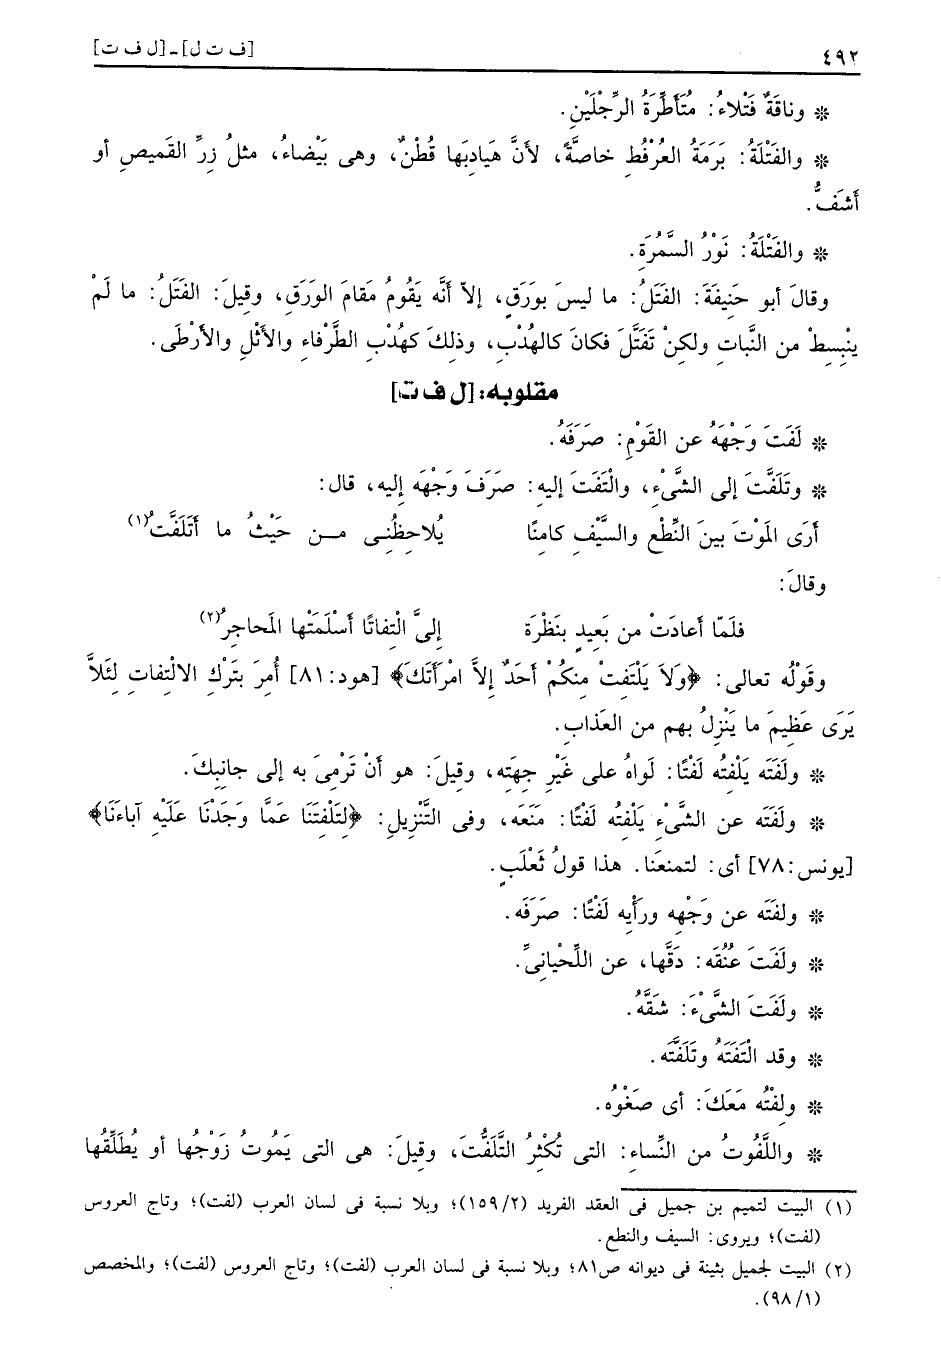 ٤٩٢
[ف ت ل] ـ [ل ف ت]
* وناقَةٌ فَتْلاءُ: مُتَأَطِّرَةُ الرِّجْلَيْنِ.
* والفَتْلَةُ: بَرَمَةُ العُرْفُطِ خاصَّةً، لأنَّ هَيادِبَها قُطْنٌ، وهى بَيْضاءُ، مثلُ زِرِّ القَميصِ أو
أشَفُّ.
* والفَتْلَةُ: نَوْرُ السَّمُرَةِ.
وقالَ أبو حَنِيفَةَ: الفَتَلُ: ما ليسَ بوَرَقٍ، إلاّ أنَّه يَقُومُ مَقامَ الوَرَقِ، وقِيلَ: الفَتَلُ: ما لَمْ
ينْبسِطْ من النَّباتِ ولكنْ تَفَتَّلَ فكانَ كالهُدْبِ، وذلكَ كهُدْبِ الطَّرْفاءِ والأَثْلِ والأَرْطَى.
مقلوبه: [ل ف ت]
* لَفَتَ وَجْهَهُ عن القَوْمِ: صَرَفَهُ.
* وتَلَفَّتَ إلى الشَّىْءِ، والْتَفَتَ إليهِ: صَرَفَ وَجْهَه إليه، قال:
أرَى المَوْتَ بينَ النِّطْعِ والسَّيْفِ كامنًا يُلاحِظُنِى مِـن حَيْثُ ما أتَلَفَّتُ(١)
وقالَ:
فلَمّا أعادَتْ من بَعِيدٍ بنَظْرَة إلىَّ الْتِفاتًا أسْلَمَتْها المَحاجِرُ(٢)
وقَوْلُه تعالى: ﴿وَلاَ يَلْتَفِتْ مِنكُمْ أَحَدٌ إِلاَّ امْرَأَتَكَ﴾ [هود:٨١] أُمِرَ بتَرْكِ الالْتِفاتِ لِئَلاَّ
يَرَى عَظِيمَ ما يَنْزِلُ بهم من العَذابِ.
* ولَفَتَه يَلْفِتُه لَفْتًا: لَواهُ على غَيْرِ جِهَتِه، وقيلَ: هو أنْ تَرْمِىَ به إلى جانِبِكَ.
* ولَفَتَه عن الشَّىْءِ يَلْفِتُه لَفْتًا: مَنَعَه، وفى التَّنْزِيلِ: ﴿لِتَلْفِتَنَا عَمَّا وَجَدْنَا عَلَيْهِ آبَاءَنَا﴾
[يونس:٧٨] أى: لتمنعَنا. هذا قولُ ثَعْلَبٍ.
* ولفَتَه عن وَجْهِه ورَأْيِه لَفْتًا: صَرَفَه.
* ولَفَتَ عُنُقَه: دَقَّها، عن اللِّحْيانِىِّ.
* ولَفَتَ الشَّىْءَ: شَقَّهُ.
* وقد الْتَفَتَهُ وتَلَفَّتَه.
* ولِفْتُه مَعَكَ: أى صَغْوُه.
* واللَّفُوتُ من النِّساءِ: التى تُكْثِرُ التَّلَفُّتَ، وقِيلَ: هى التى يَمُوتُ زَوْجُها أو يُطَلِّقُها
(١) البيت لتميم بن جميل فى العقد الفريد (١٥٩/٢)؛ وبلا نسبة فى لسان العرب (لفت)؛ وتاج العروس
(لفت)؛ ويروى: السيف والنطع.
(٢) البيت لجميل بثينة فى ديوانه ص٨١؛ وبلا نسبة فى لسان العرب (لفت)؛ وتاج العروس (لفت)؛ والمخصص
(٩٨/١).